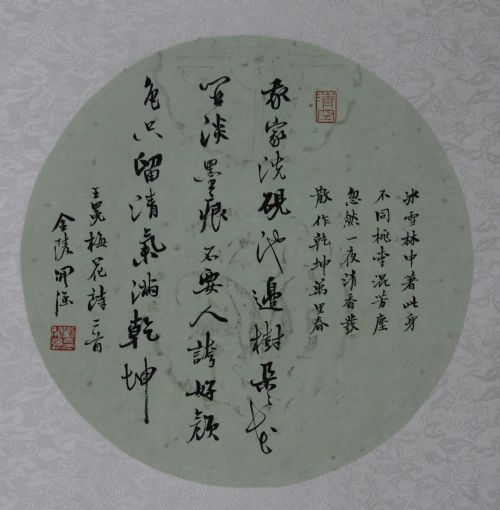 冰雪林中著此身
不同桃李混芳塵
忽然一夜清香發
散作乾坤萬里春
我家洗硯池邊樹朵朵花
開淡墨痕不要人誇好顏
色只留清氣滿乾坤
王冕梅花詩二首
金陵